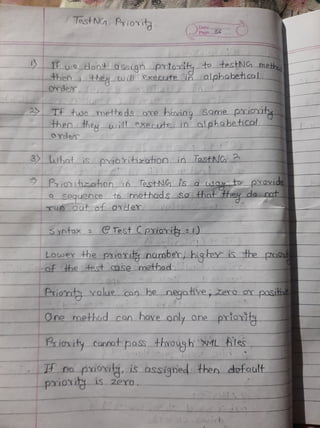 TestNG Priority
1) If we dont assign priority to testNG method
then, they will execute in alphabetical
order.
2) If two methods are having same priority
then they will execute in alphabetical
order
3) What is prioritization in TestNG ?
→ Prioritization in TestNG is a way to provide
a sequence to methods so that they do not
run out of order
Syntax = @Test (priority = 1)
Lower the priority number, higher is the priority
of the test case method.
Priority value can be negative, zero or positive
One method can have only one priority
Priority cannot pass through XML files.
If no priority, is assigned then default
priority is zero.